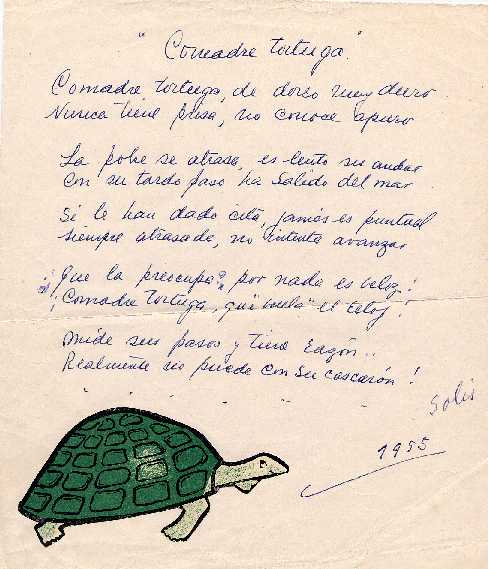 "Comadre tortuga"
Comadre tortuga, de dorso muy duro
Nunca tiene prisa, no conoce apuro
La pobre se atrasa, es lento su andar
Con su tardo paso ha salido del mar
Si le han dado cita, jamás es puntual
Siempre atrasada, no intenta avanzar
¿Que la preocupa? por nada es veloz!
¡Comadre Tortuga, que "vuela" el reloj!
Mide sus pasos y tiene razón..
Realmente no puede con su cascarón!
Solis
1955